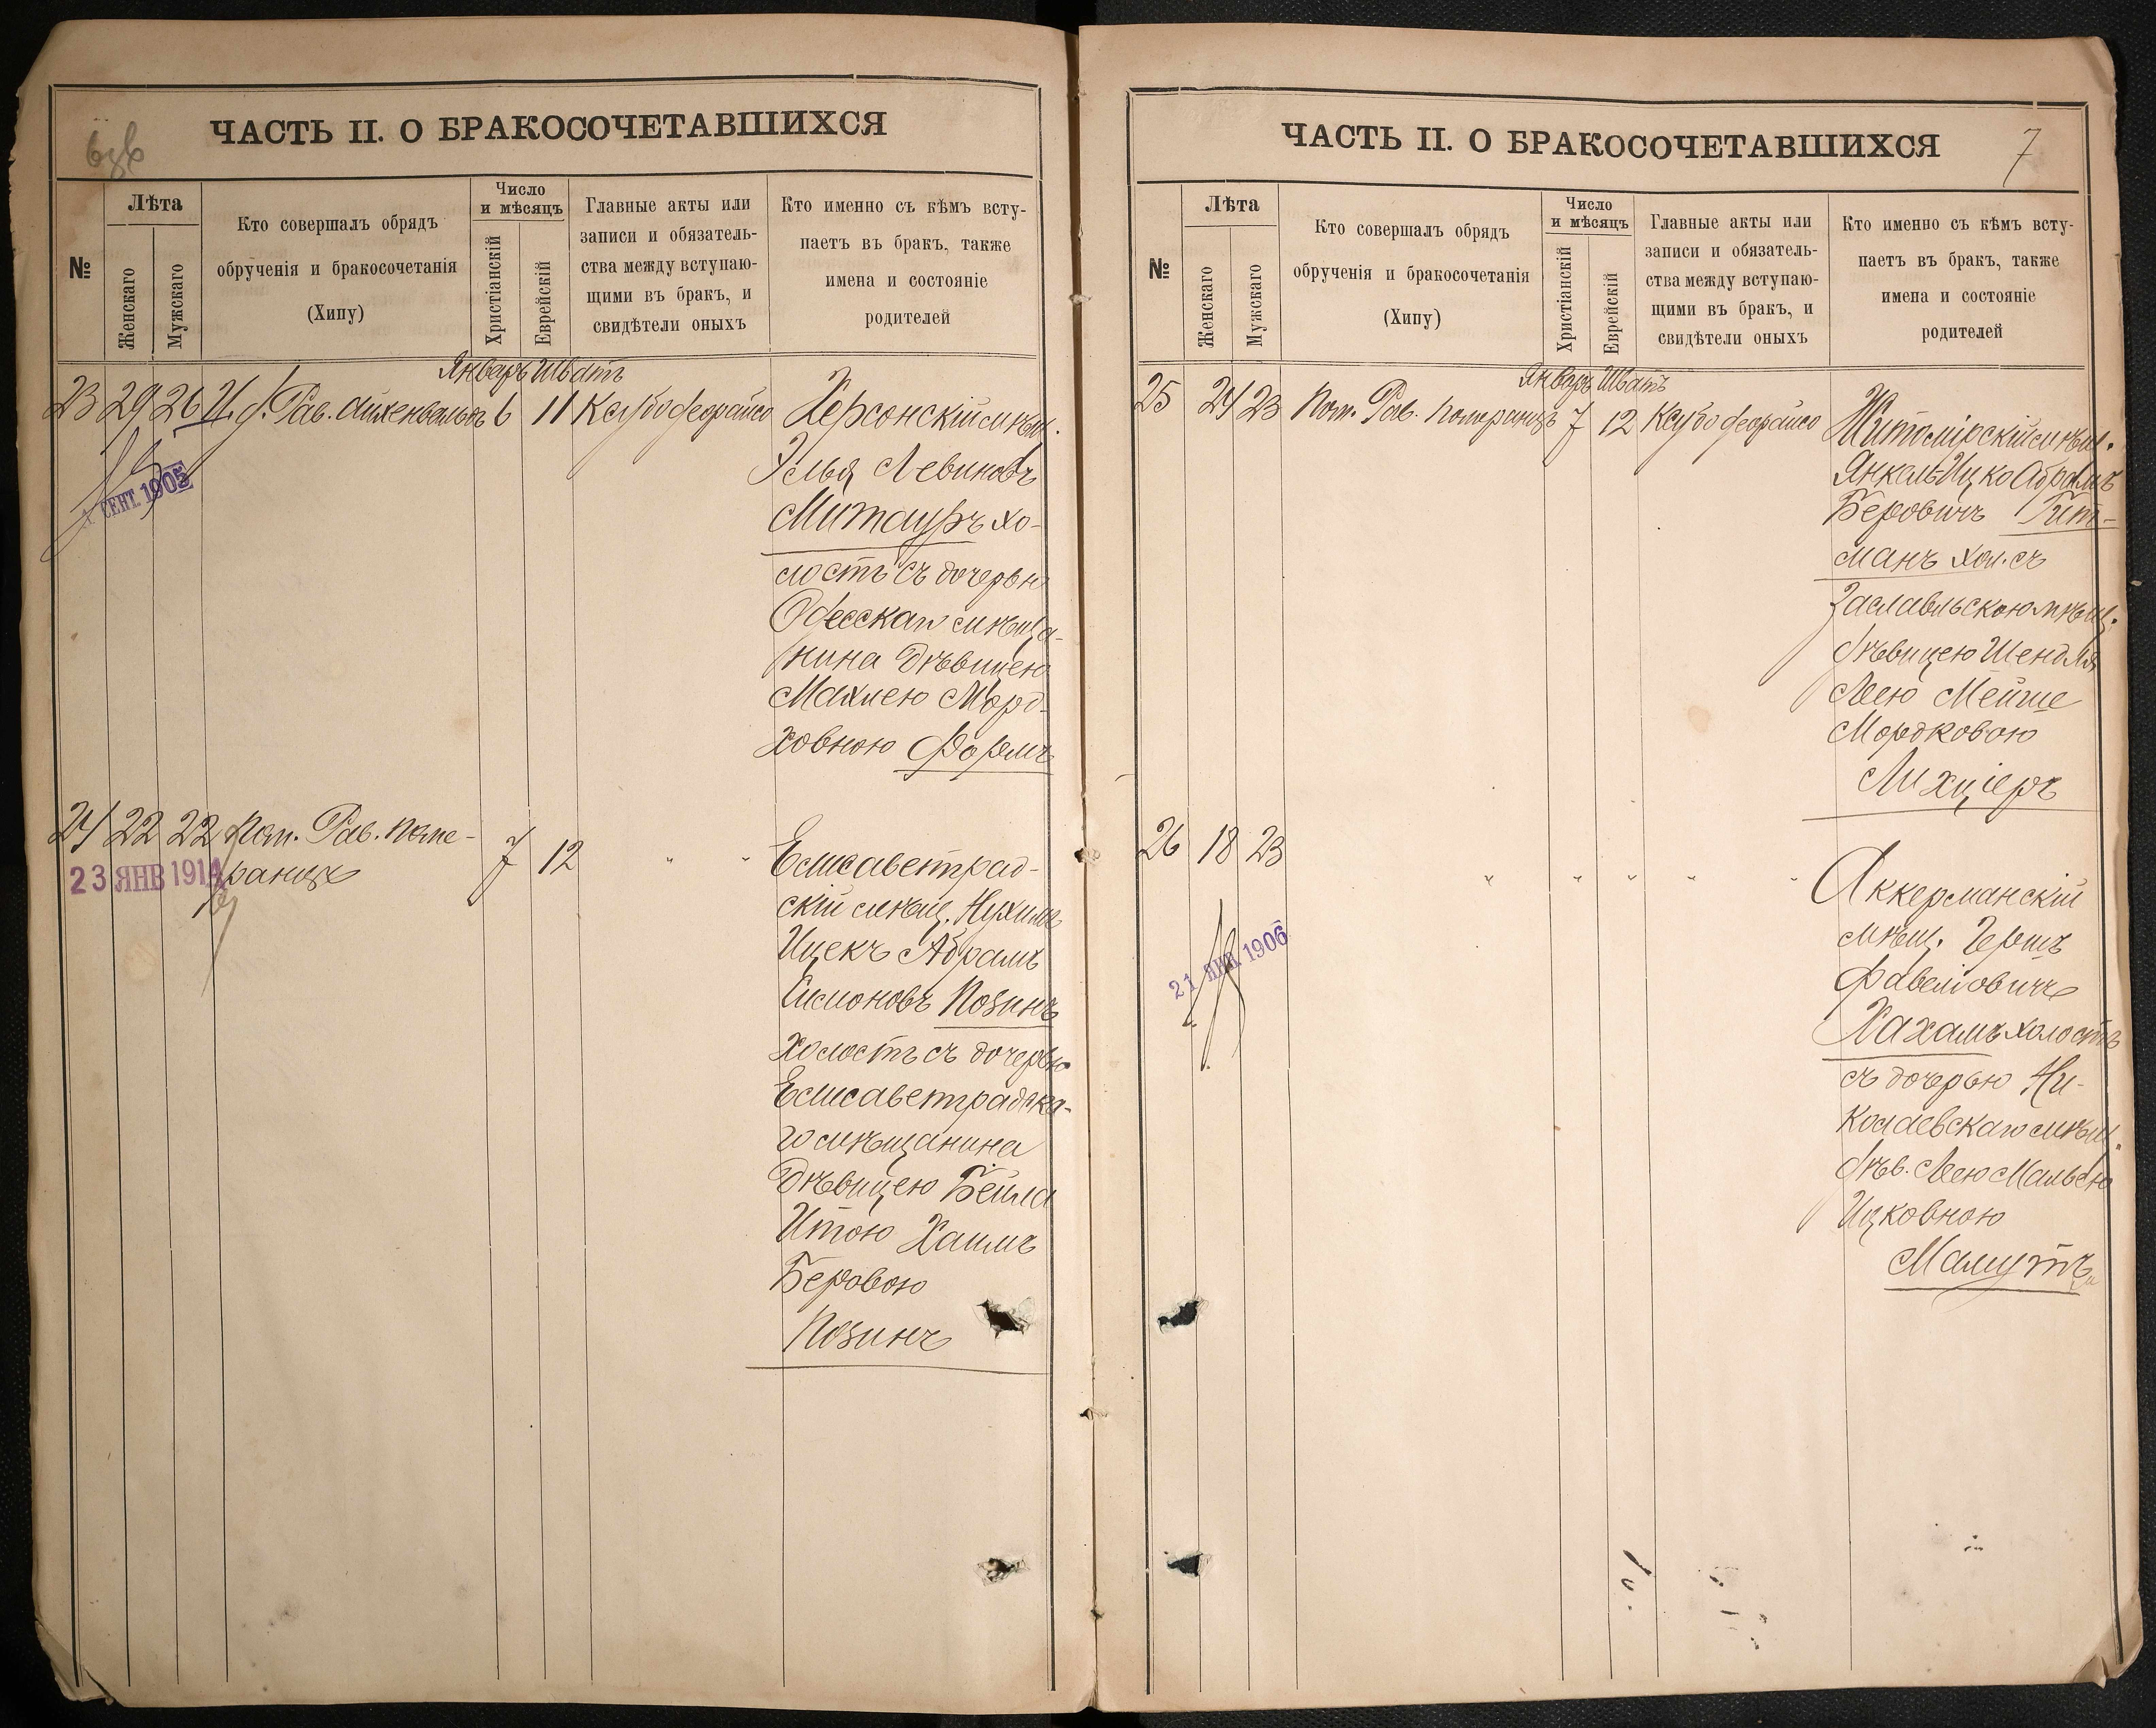 ЧАСТЬ II. О БРАКОСОЧЕТАВШИХСЯ
№
Лѣта
Женскаго
Мужскаго
Кто совершалъ обрядъ
обрученія и бракосочетанія
(Хипу)
Число
и мѣсяцъ
Христіанскій
Еврейскій
Главные акты или
записи и обязатель-
ства между вступаю-
щими въ бракъ, и
свидѣтели оныхъ
Кто именно съ кѣмъ всту-
паетъ въ бракъ, также
имена и состояніе
родителей
Январь Шватъ
23 29 26 И. д. Рав. Айхенвальдъ 6 11
Херсонскій мѣщ.
Элья Левиновъ
Митауръ хо-
лостъ съ дочерью
Одесскаго мѣща-
нина дѣвицею
Махлею Морд-
ховною Формъ
СЕНТ. 1905
24 22 22 Пом. Рав. Поме-
ранцъ
7 12 " "
23 ЯНВ 1914
Елисаветград-
скій мѣщ. Нухимъ
Ицекъ Абрамъ
Симоновъ Позинъ
холостъ съ дочерью
Елисаветградска-
го мѣщанина
дѣвицею Бейла
Итою Хаимъ
Беровою
Позинъ
ЧАСТЬ II. О БРАКОСОЧЕТАВШИХСЯ
7
№
Лѣта
Женскаго
Мужскаго
Кто совершалъ обрядъ
обрученія и бракосочетанія
(Хипу)
Число
и мѣсяцъ
Христіанскій
Еврейскій
Главные акты или
записи и обязатель-
ства между вступаю-
щими въ бракъ, и
свидѣтели оныхъ
Кто именно съ кѣмъ всту-
паетъ въ бракъ, также
имена и состояніе
родителей
Январь Шватъ
25 24 23 Пом. Рав. Померанцъ 7 12
Житомірскій мѣщ.
Янкель-Ицко Абрамъ
Беровичъ Гит-
манъ хол. съ
Заславльскою мѣщ.
дѣвицею Шендля
Леею Мейше
Мордковою
Лихціеръ
26 18 23 " " " " "
21 ЯНВ 1906
Аккерманскій
мѣщ. Гершъ
Фавеліовичъ
Хахамъ холостъ
съ дочерью Ни-
колаевскаго мѣщ.
дѣв. Леею Мальею
Ицковною
Маліутъ